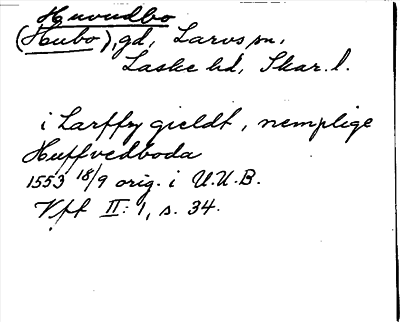 Huvudbo
(Hubo), gd, Larvs sn,
Laske hd, Skar. l.
i Larffzy gieldt, nemplige
Huffvedboda
1553 18/9 orig. i U.U.B.
Vft II: 1, s. 34.